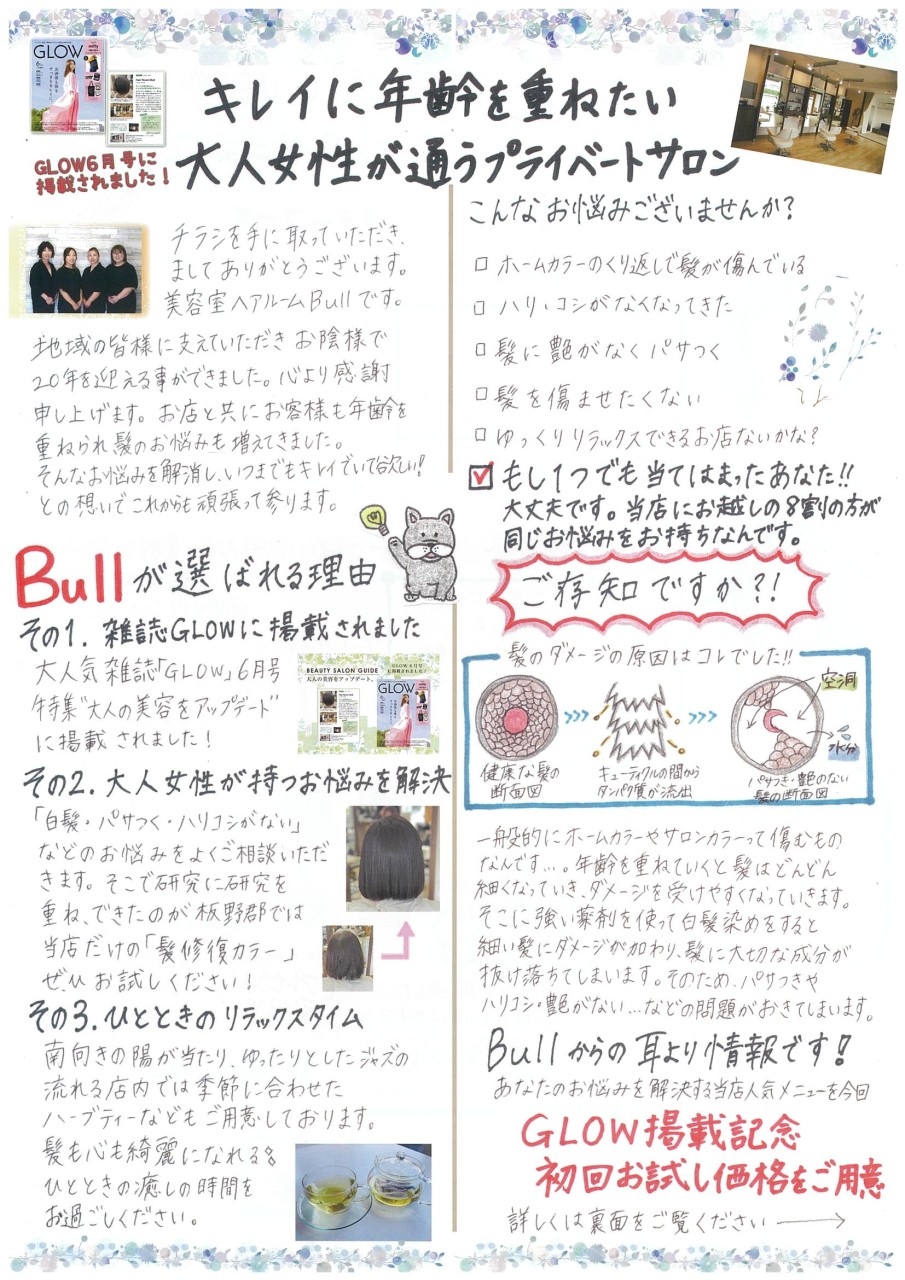 GLOW
キレイに年齢を重ねたい
大人女性が通うプライベートサロン
GLOW6月号に
掲載されました!
チラシを手に取っていただき、
ましてありがとうございます。
美容室ヘアルームBullです。
地域の皆様に支えていただきお陰様で
20年を迎える事ができました。心より感謝
申し上げます。お店と共にお客様も年齢を
重ねられ髪のお悩みも増えてきました。
そんなお悩みを解消し、いつまでもキレイでいて欲しい!
との想いでこれからも頑張って参ります。
Bullが選ばれる理由
その1. 雑誌GLOWに掲載されました
大人気雑誌「GLOW」6月号
特集"大人の美容をアップデート"
に掲載されました!
BEAUTY SALON GUIDE
大人の美容をアップデート。
GLOW 6月号
に掲載されました!
GLOW
その2. 大人女性が持つお悩みを解決
「白髪・パサつく・ハリコシがない」
などのお悩みをよくご相談いただ
きます。そこで研究に研究を
重ね、できたのが板野郡では
当店だけの「髪修復カラー」
ぜひお試しください!
その3. ひとときのリラックスタイム
南向きの陽が当たり、ゆったりとしたジャズの
流れる店内では季節に合わせた
ハーブティーなどもご用意しております。
髪も心も綺麗になれる
ひとときの癒しの時間を
お過ごしください。
こんなお悩みございませんか?
□ ホームカラーのくり返しで髪が傷んでいる
□ ハリ・コシがなくなってきた
□ 髪に艶がなくパサつく
□ 髪を傷ませたくない
□ ゆっくりリラックスできるお店ないかな?
☑ もし1つでも当てはまったあなた!!
大丈夫です。当店にお越しの8割の方が
同じお悩みをお持ちなんです。
ご存知ですか?!
髪のダメージの原因はコレでした!!
空洞
水分
健康な髪の
断面図
キューティクルの間から
タンパク質が流出
パサつき・艶のない
髪の断面図
一般的にホームカラーやサロンカラーって傷むもの
なんです...。年齢を重ねていくと髪はどんどん
細くなっていき、ダメージを受けやすくなっていきます。
そこに強い薬剤を使って白髪染めをすると
細い髪にダメージが加わり、髪に大切な成分が
抜け落ちてしまいます。そのため、パサつきや
ハリコシ・艶がない...などの問題がおきてしまいます。
Bullからの耳より情報です!
あなたのお悩みを解決する当店人気メニューを今回
GLOW掲載記念
初回お試し価格をご用意
詳しくは裏面をご覧ください→